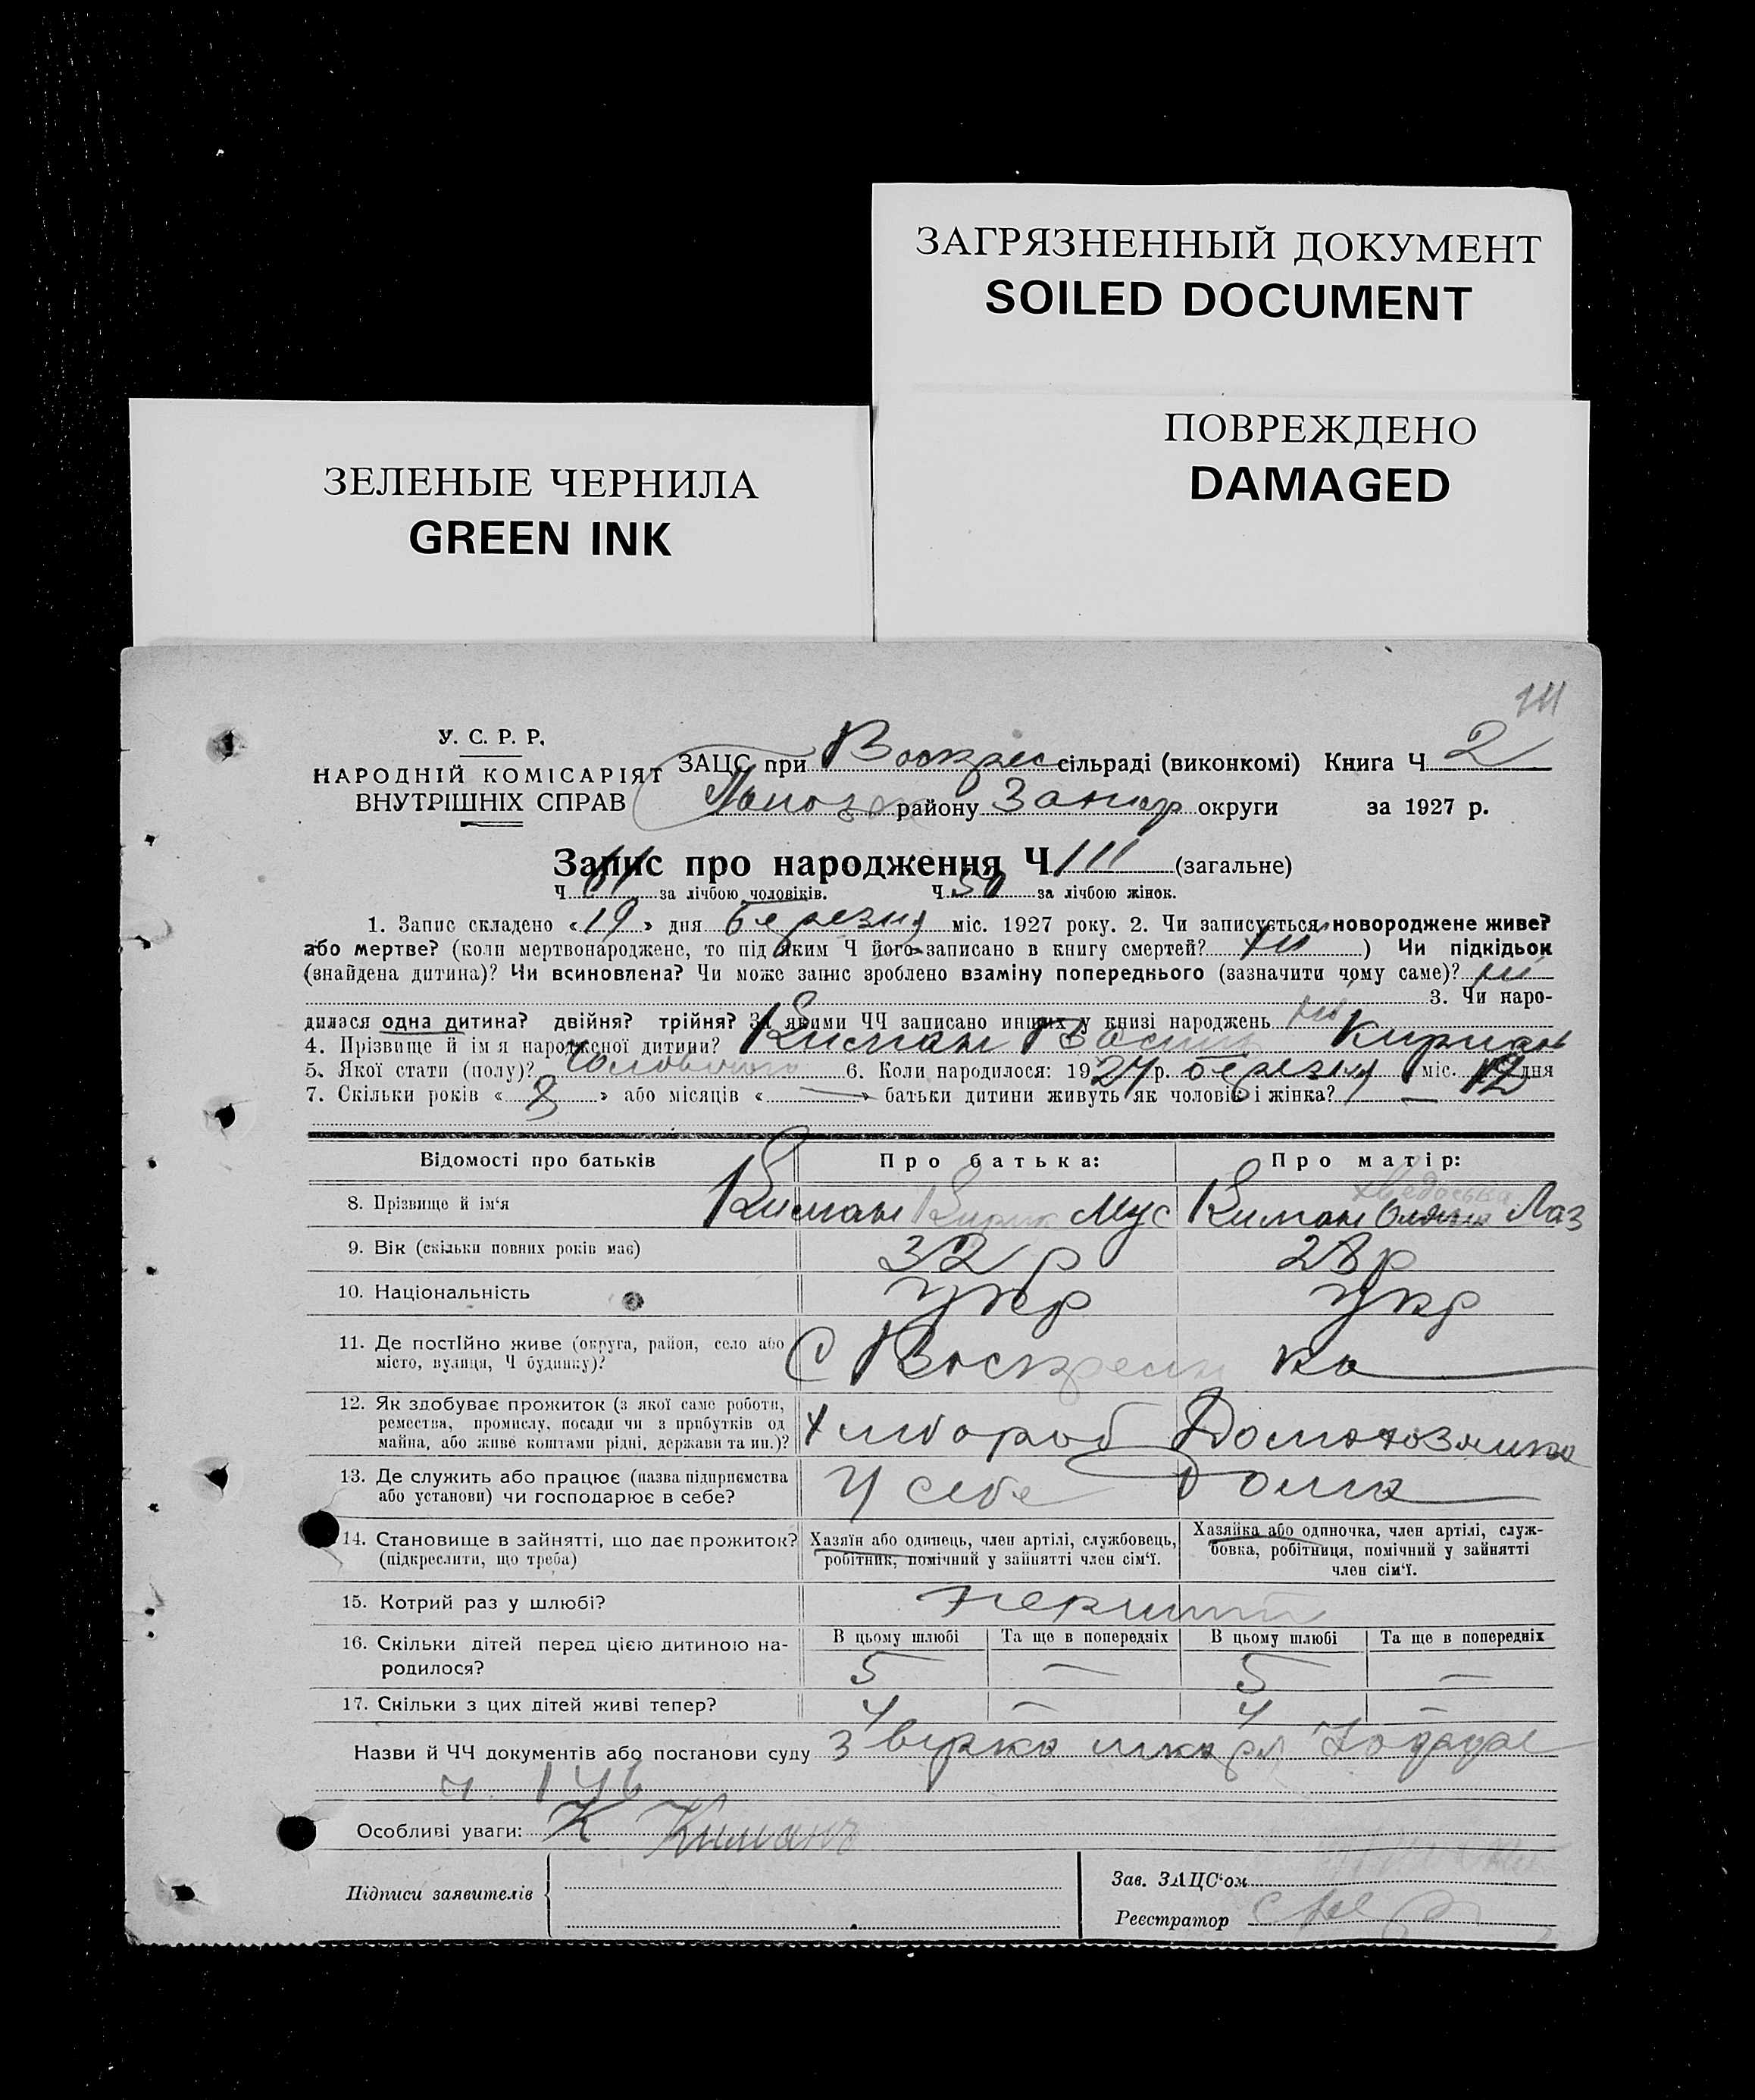 ЗАГРЯЗНЕННЫЙ ДОКУМЕНТ
SOILED DOCUMENT
ПОВРЕЖДЕНО
DAMAGED
ЗЕЛЕНЫЕ ЧЕРНИЛА
GREEN INK
У. С. Р. Р.
НАРОДНІЙ КОМІСАРІЯТ
ВНУТРІШНІХ СПРАВ
ЗАЦС при Воскрес сільраді (виконкомі) Книга Ч 2
району Запор округи за 1927 р.
Запис про народження Ч 111 (загальне)
Ч 61 за лічбою чоловіків. Ч 50 за лічбою жінок.
1. Запис складено «19» дня березня міс. 1927 року. 2. Чи записується новороджене живе?
або мертве? (коли мертвонароджене, то під яким Ч його записано в книгу смертей? ні ) Чи підкідьок
(знайдена дитина)? Чи всиновлена? Чи може запис зроблено взаміну попереднього (зазначити чому саме)? ні
3. Чи наро-
дилася одна дитина? двійня? трійня? За якими ЧЧ записано инших у книзі народжень ні
4. Прізвище й ім я народженої дитини? Кисман Васил
5. Якої стати (полу)? чоловічого 6. Коли народилося: 1927 р. березня міс. 12 дня
7. Скільки років « 8 » або місяців « — » батьки дитини живуть як чоловік і жінка?
Відомості про батьків Про батька: Про матір:
8. Прізвище й ім‘я Кисман Кирик Мус Кисман Хведоська Лаз
9. Вік (скільки повних років має) 32 р 28 р
10. Національність укр укр
11. Де постійно живе (округа, район, село або
місто, вулиця, Ч будинку)? С Воскресенка
12. Як здобуває прожиток (з якої саме роботи,
ремества, промислу, посади чи з прибутків од
майна, або живе коштами рідні, держави та ин.)? Хлібороб Домохозяика
13. Де служить або працює (назва підприємства
або установи) чи господарює в себе? У себе Дома
14. Становище в зайнятті, що дає прожиток?
(підкреслити, що треба)
Хазяїн або одинець, член артілі, службовець,
робітник, помічний у зайнятті член сім‘ї.
Хазяйка або одиночка, член артілі, служ-
бовка, робітниця, помічний у зайнятті
член сім‘ї.
15. Котрий раз у шлюбі? перший
16. Скільки дітей перед цією дитиною на-
родилося?
В цьому шлюбі Та ще в попередніх В цьому шлюбі Та ще в попередніх
5 — 5 —
17. Скільки з цих дітей живі тепер? 4 — 4 —
Назви й ЧЧ документів або постанови суду
ч 146
Особливі уваги: К Кисман
Підписи заявителів
Зав. ЗАЦС‘ом
Реєстратор